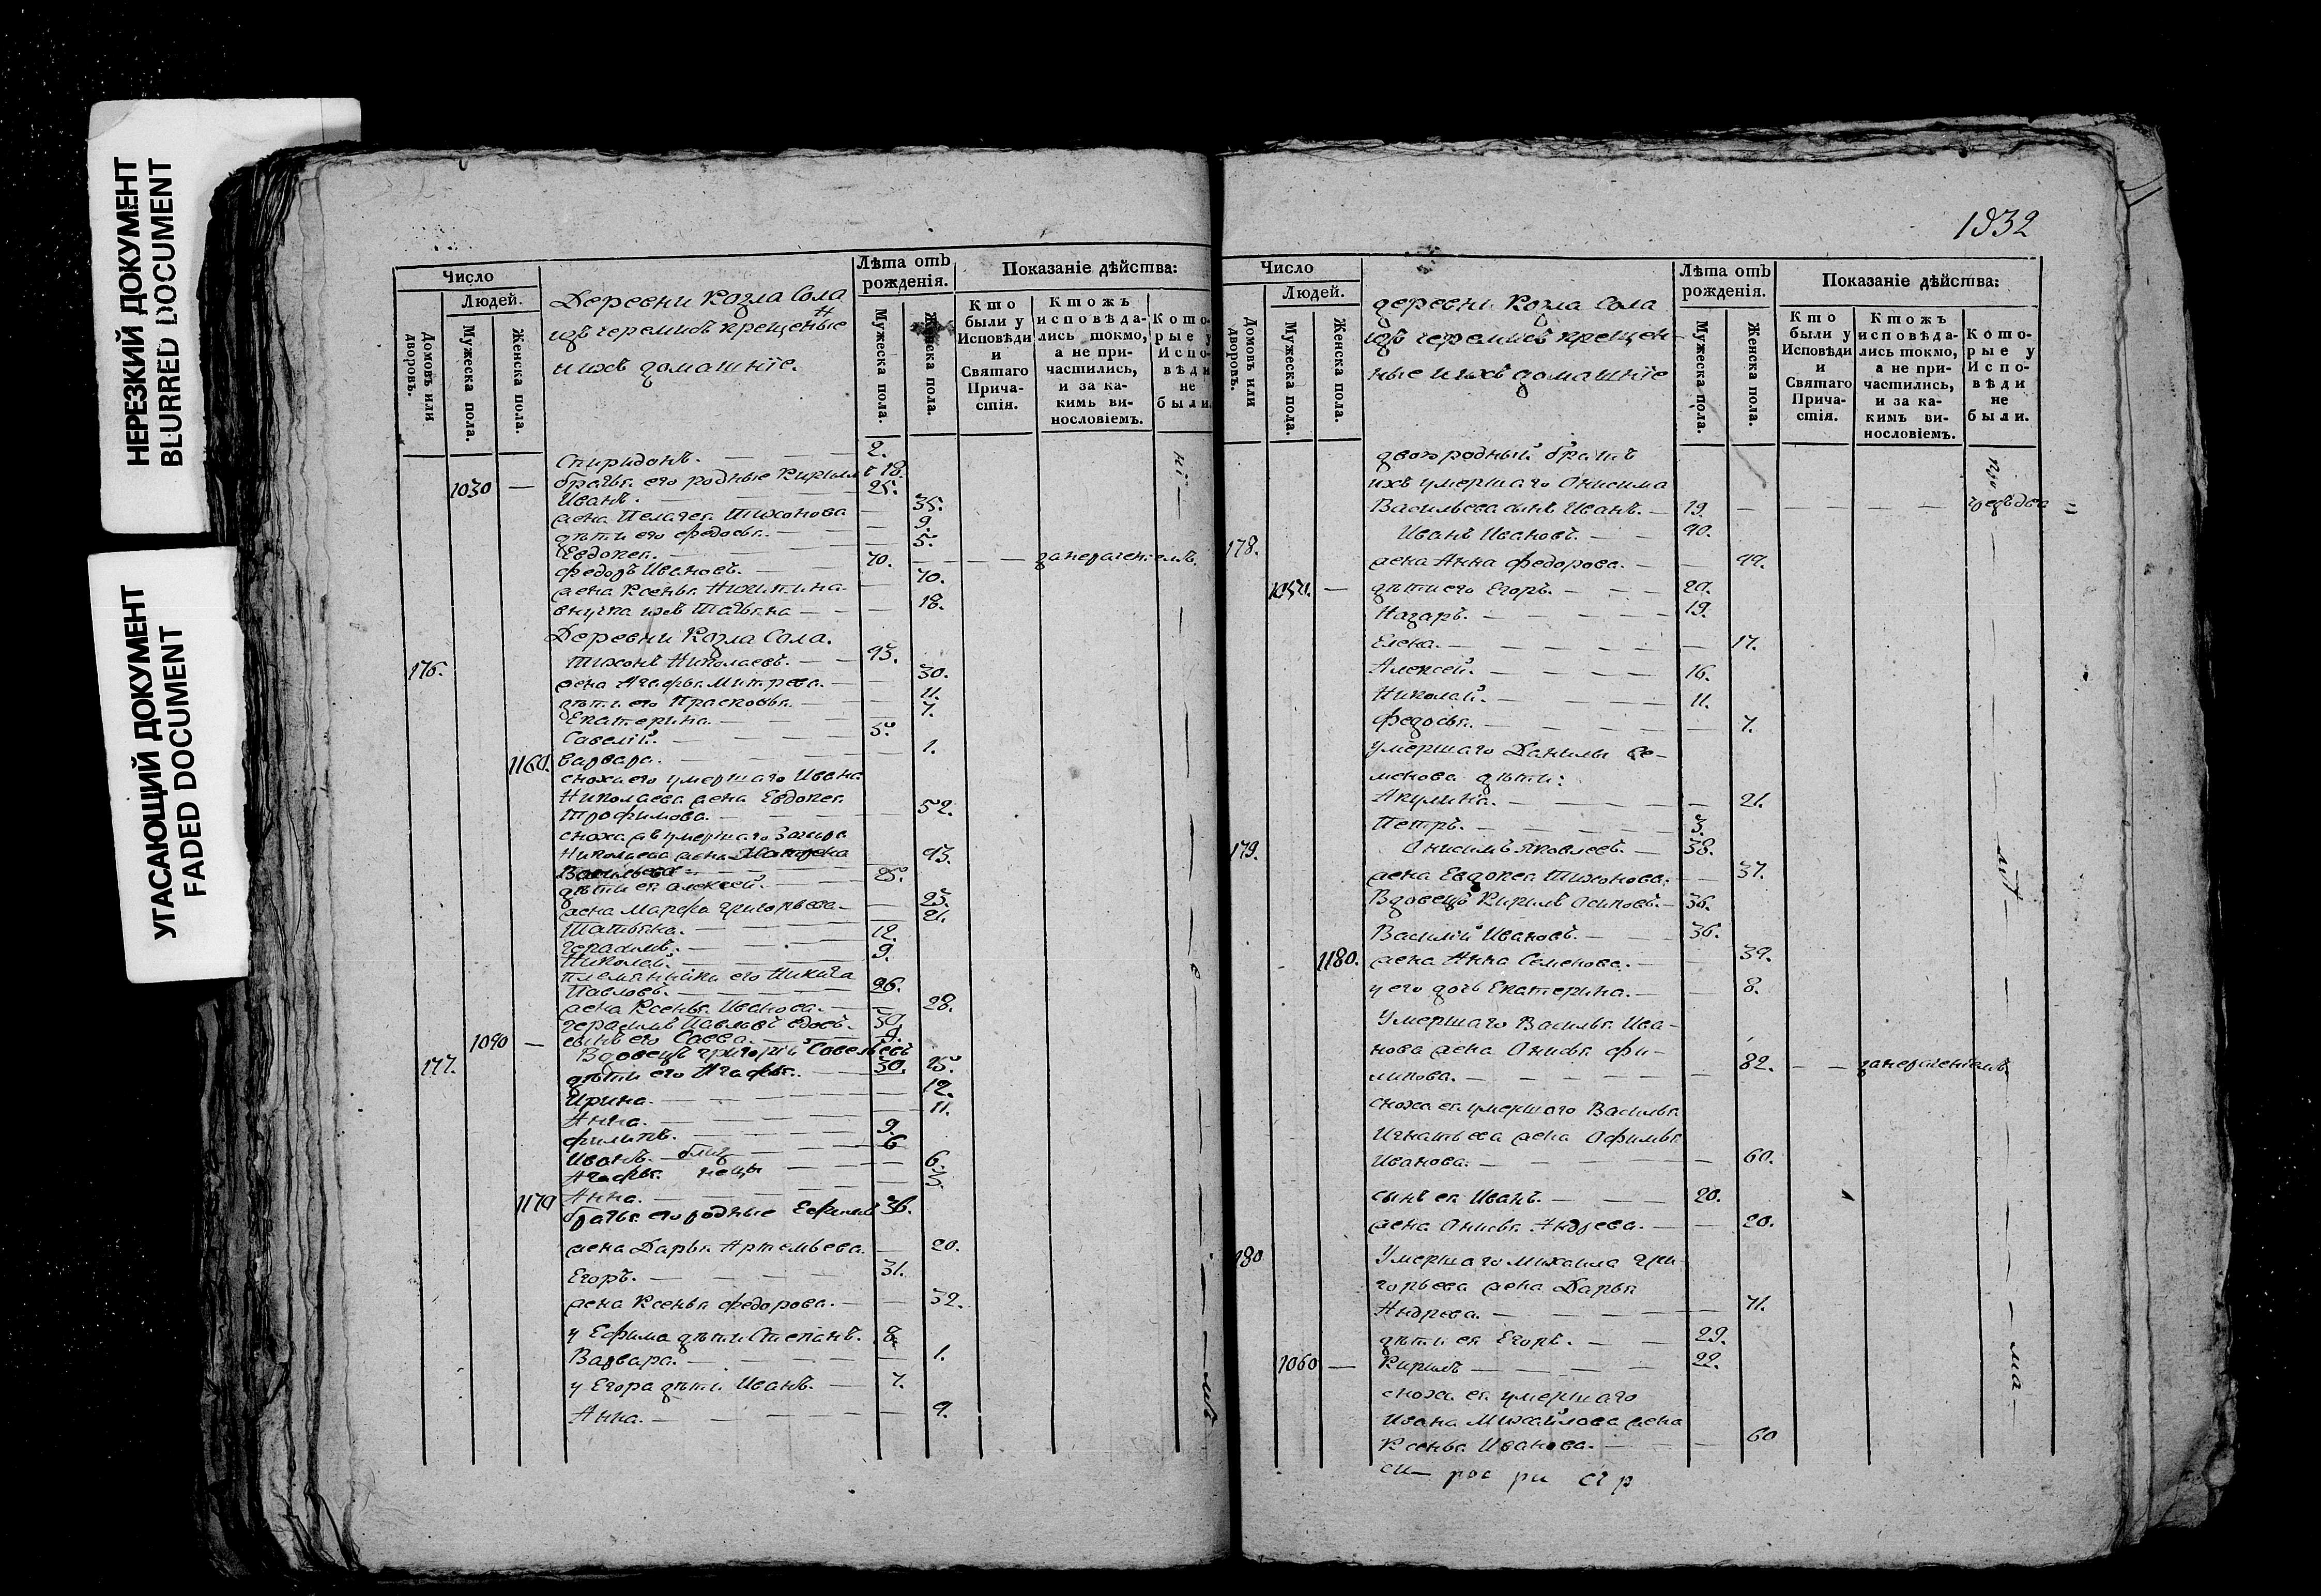 НЕРЕЗКИЙ ДОКУМЕНТ
BLURRED DOCUMENT
УГАСАЮЩИЙ ДОКУМЕНТ
FADED DOCUMENT
Число
Людей.
Домовъ или дворовъ.
Мужеска пола.
Женска пола.
Деревни Козла Сола
изъ черемисъ крещеные
и ихъ домашнїе.
Лѣта отъ рожденїя.
Мужеска пола.
Женска пола.
Показанїе дѣйства:
Кто были у Исповѣди и Святаго Причастїя.
Ктожъ исповѣдались токмо, а не причастились, и за какимъ винословїемъ.
Которые у Исповѣди не были.
Спиридонъ. 2.
1030 — братья его родные Кирилъ 18.
Иванъ. 25.
жена Пелагея Тихонова 35.
дѣти его Федосья. 9.
Евдокея. 5.
Федоръ Ивановъ. 70.
жена Ксенья Никитина 70.
внучка ихъ Татьяна 18.
Деревни Козла Сола.
176. Тихонъ Николаевъ. 43.
жена Агафья Митрева. 30.
дѣти его Прасковья. 11.
Екатерина. 7.
Савелїй. 5.
1160. Варвара. 1.
сноха его умершаго Ивана
Николаева жена Евдокея
Трофимова. 52.
Николаева жена
Васильева 43.
дѣти ея Алексей. 25.
жена Марфа Григорьева. 23.
Татьяна. 21.
Герасимъ. 12.
Николай. 9.
племянники его Никита
Павловъ. 26.
жена Ксенья Иванова. 28.
Герасимъ Павловъ вдовъ.
1040 — сынъ его Савва.
177. Вдовецъ Григорїй Савельевъ 50.
дѣти его Агафья. 15.
Ирина. 12.
Анна. 11.
Филипъ. 9.
Иванъ. близ 6
Агафья нецы 6.
1170 Анна. 3.
братья его родные Ефимъ 36.
жена Дарья Артемьева. 20.
Егоръ. 31.
жена Ксенья Федорова. 32.
у Ефима дѣти Степанъ. 8.
Варвара. 1.
у Егора дѣти Иванъ. 7.
Анна. 9.
1032
Число
Людей.
Домовъ или дворовъ.
Мужеска пола.
Женска пола.
деревни Козла Сола
изъ черемисъ крещен-
ные и ихъ домашнїе
Лѣта отъ рожденїя.
Мужеска пола.
Женска пола.
Показанїе дѣйства:
Кто были у Исповѣди и Святаго Причастїя.
Ктожъ исповѣдались токмо, а не причастились, и за какимъ винословїемъ.
Которые у Исповѣди не были.
двоюродный братъ
ихъ умершаго Онисима
Васильева сынъ Иванъ. 19.
178. Иванъ Ивановъ. 40.
жена Анна Федорова. 44.
1050. — дѣти его Егоръ. 20.
Назаръ. 19.
Елена. 17.
Алексей. 16.
Николай. 11.
Федосья. 7.
умершаго Данилы Се-
менова дѣти:
Акулина. 21.
Петръ. 3.
179. Онисимъ Яковлевъ. 38.
жена Евдокея Тихонова. 37.
Вдовецъ Кирилъ Осиповъ. 36.
Василїй Ивановъ. 36.
1180. жена Анна Семенова. 39.
у его дочь Екатерина. 8.
Умершаго Василья Ива-
нова жена Онисья Фи-
липова. 82.
сноха ея умершаго Василья
Игнатьева жена Офимья
Иванова. 60.
сынъ ея Иванъ. 20.
жена Онисья Андрева. 20.
180 Умершаго Михаила Гри-
горьева жена Дарья
Андрева. 71.
дѣти ея Егоръ. 29.
1060 — Кирилъ 22.
сноха ея умершаго
Ивана Михайлова жена
Ксенья Иванова. 60